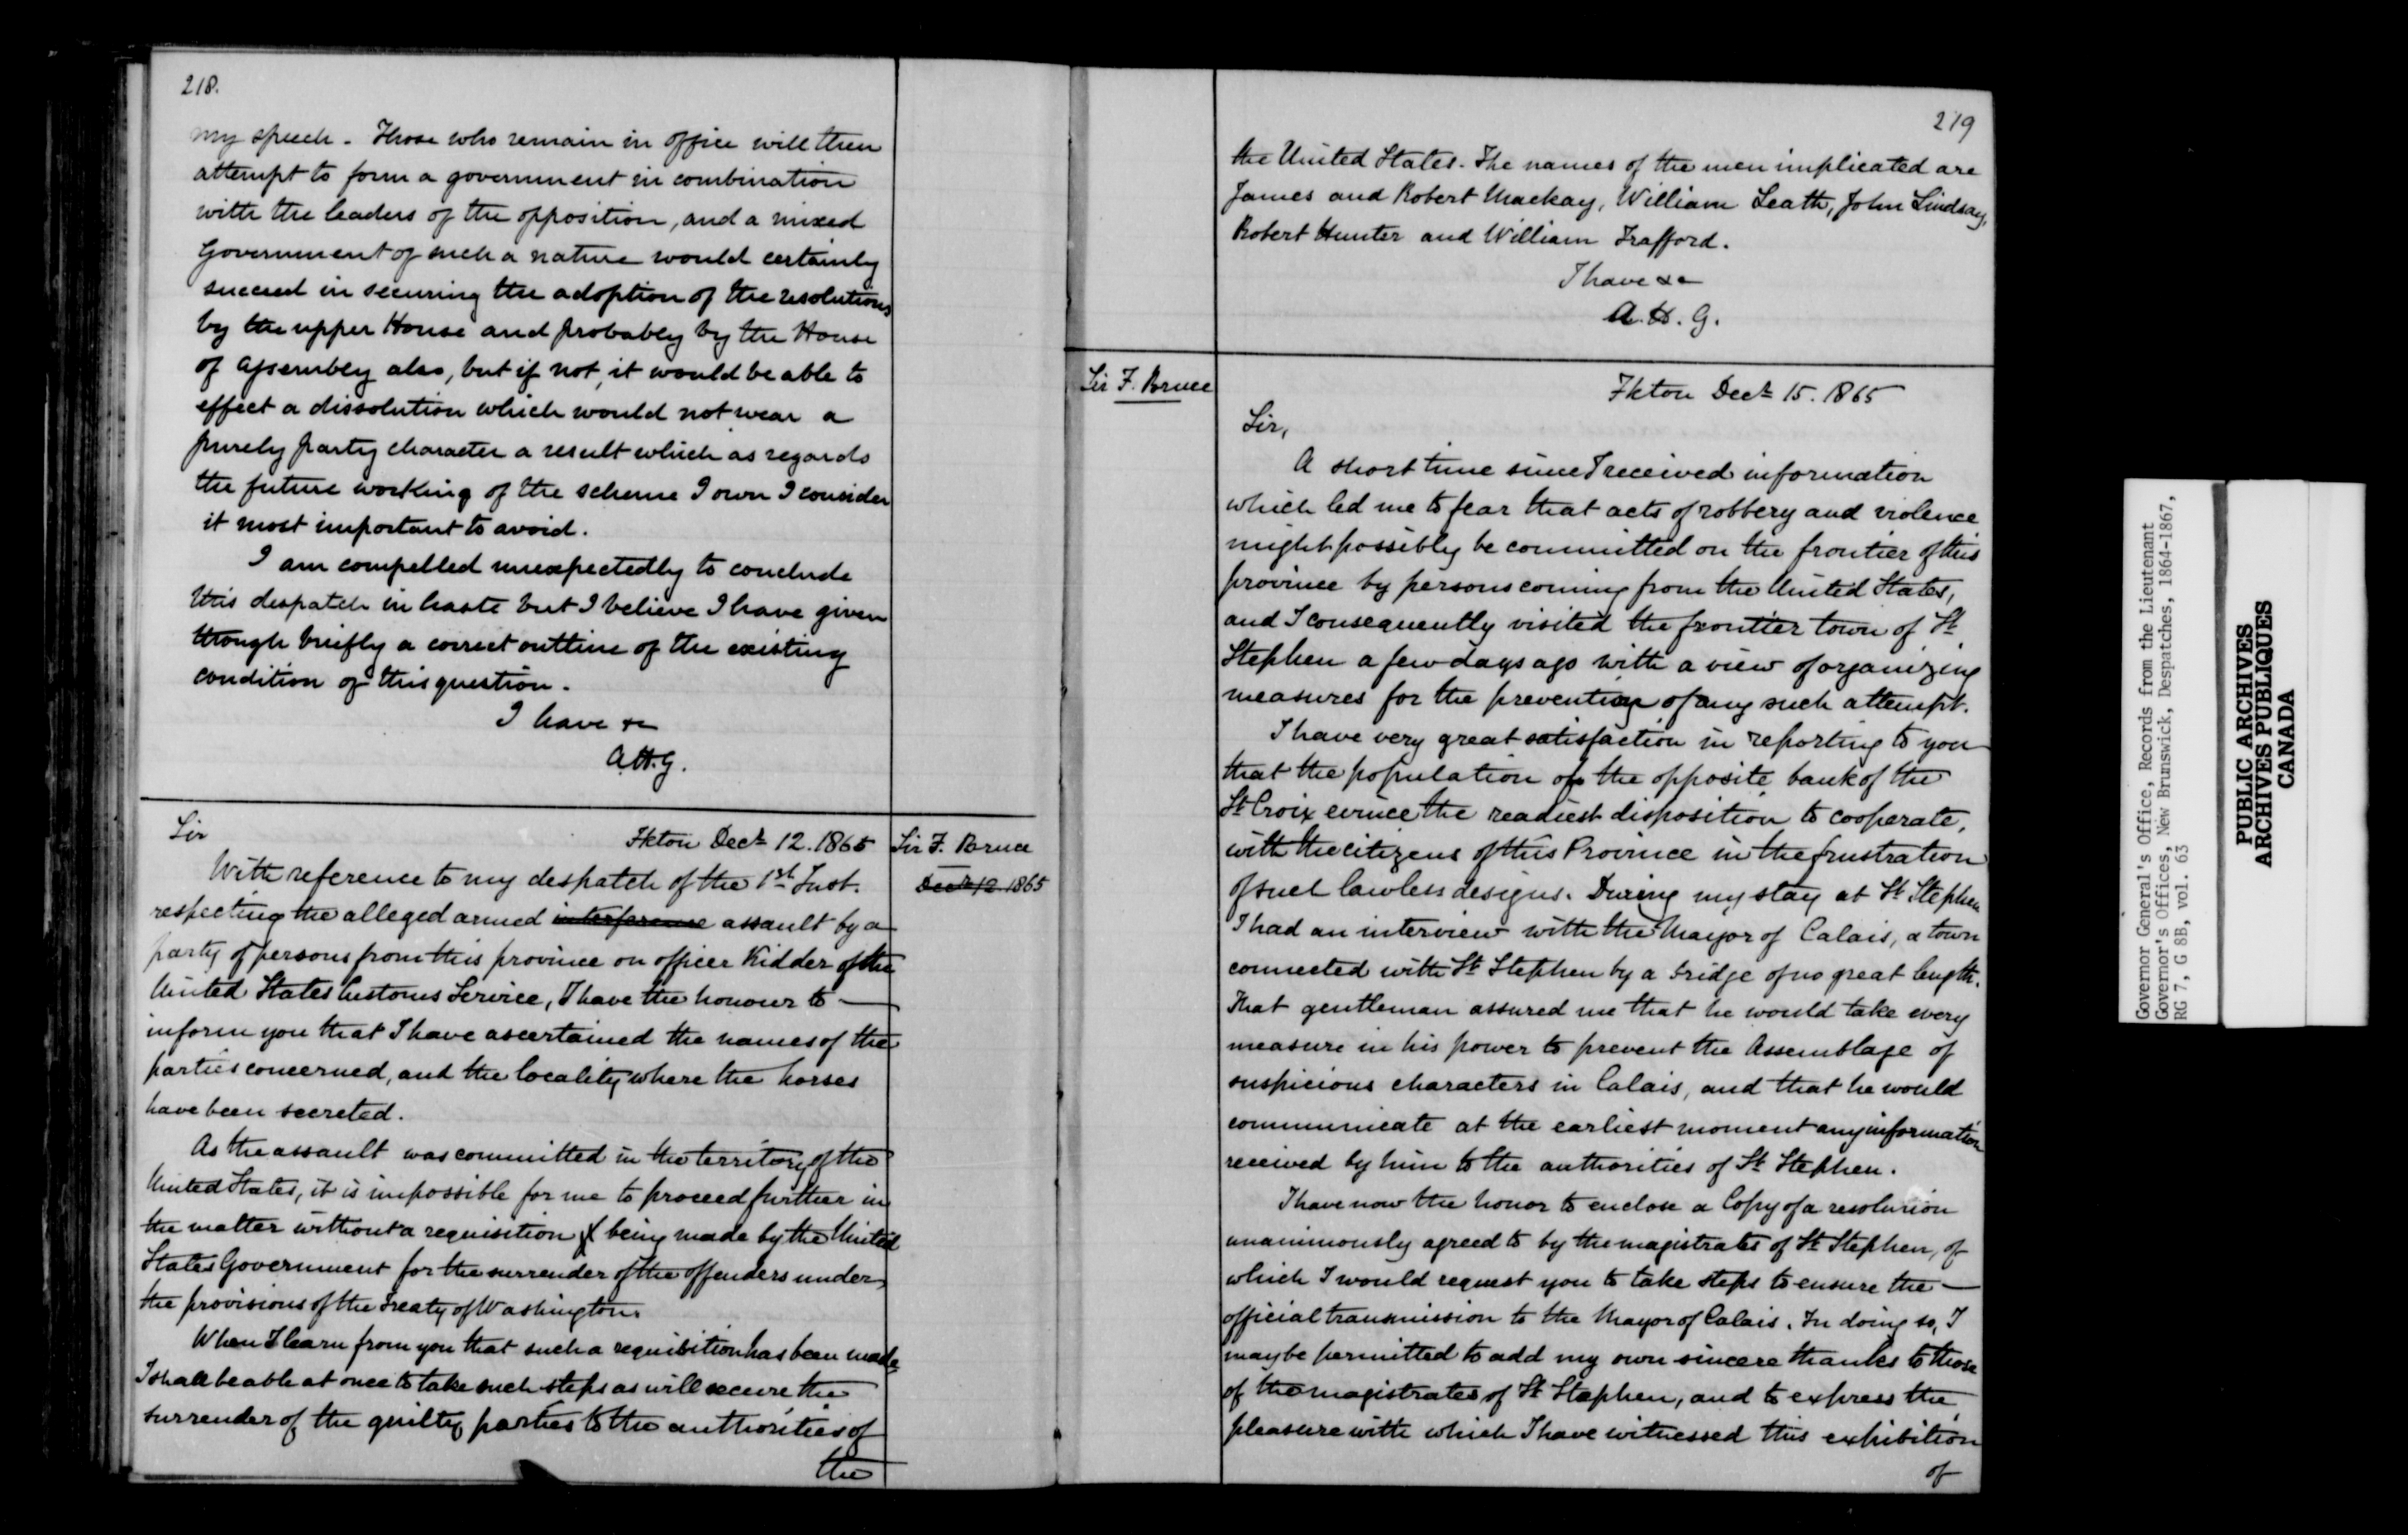 218.
my speech - Those who remain in office will then
attempt to form a government in combination
with the leaders of the opposition, and a mixed
Government of such a nature would certainly
succeed in securing the adoption of the resolutions
by the upper House and probably by the House
of Assembly also, but if not, it would be able to
effect a dissolution which would not wear a
purely party character a result which as regards
the future working of the scheme I own I consider
it most important to avoid.
I am compelled unexpectedly to conclude
this despatch in haste but I believe I have given
though briefly a correct outline of the existing
condition of this question.
I have &c
A.H.G.
Sir
Fkton Decr 12. 1865
Sir F. Bruce
Decr 12 1865
With reference to my despatch of the 1st Inst.
respecting the alleged armed interference assault by a
party of persons from this province on officer Kidder of the
United States Customs Service, I have the honour to
inform you that I have ascertained the names of the
parties concerned, and the locality where the horses
have been secreted.
As the assault was committed in the territory of the
United States, it is impossible for me to proceed further in
the matter without a requisition being made by the United
States Government for the surrender of the offenders under
the provisions of the Treaty of Washington.
When I learn from you that such a requisition has been made
I shall be able at once to take such steps as will secure the
surrender of the guilty parties to the authorities of
the
219
the United States. The names of the men implicated are
James and Robert Mackay, William Leath, John Lindsay,
Robert Hunter and William Trafford.
I have &c
A.H.G.
Sir F. Bruce
Fkton Decr 15. 1865
Sir,
A short time since I received information
which led me to fear that acts of robbery and violence
might possibly be committed on the frontier of this
province by persons coming from the United States,
and I consequently visited the frontier town of St
Stephen a few days ago with a view of organizing
measures for the prevention of any such attempt.
I have very great satisfaction in reporting to you
that the population of the opposite bank of the
St Croix evince the readiest disposition to cooperate,
with the citizens of this Province in the frustration
of such lawless designs. During my stay at St Stephen
I had an interview with the Mayor of Calais, a town
connected with St Stephen by a bridge of no great length.
That gentleman assured me that he would take every
measure in his power to prevent the Assemblage of
suspicious characters in Calais, and that he would
communicate at the earliest moment any information
received by him to the authorities of St Stephen.
I have now the honor to enclose a Copy of a resolution
unanimously agreed to by the magistrates of St Stephen, of
which I would request you to take steps to ensure the
official transmission to the Mayor of Calais. In doing so, I
may be permitted to add my own sincere thanks to those
of the magistrates of St Stephen, and to express the
pleasure with which I have witnessed this exhibition
of
Governor General's Office, Records from the Lieutenant
Governor's Offices, New Brunswick, Despatches, 1864-1867,
RG 7, G 8B, vol. 63
PUBLIC ARCHIVES
ARCHIVES PUBLIQUES
CANADA